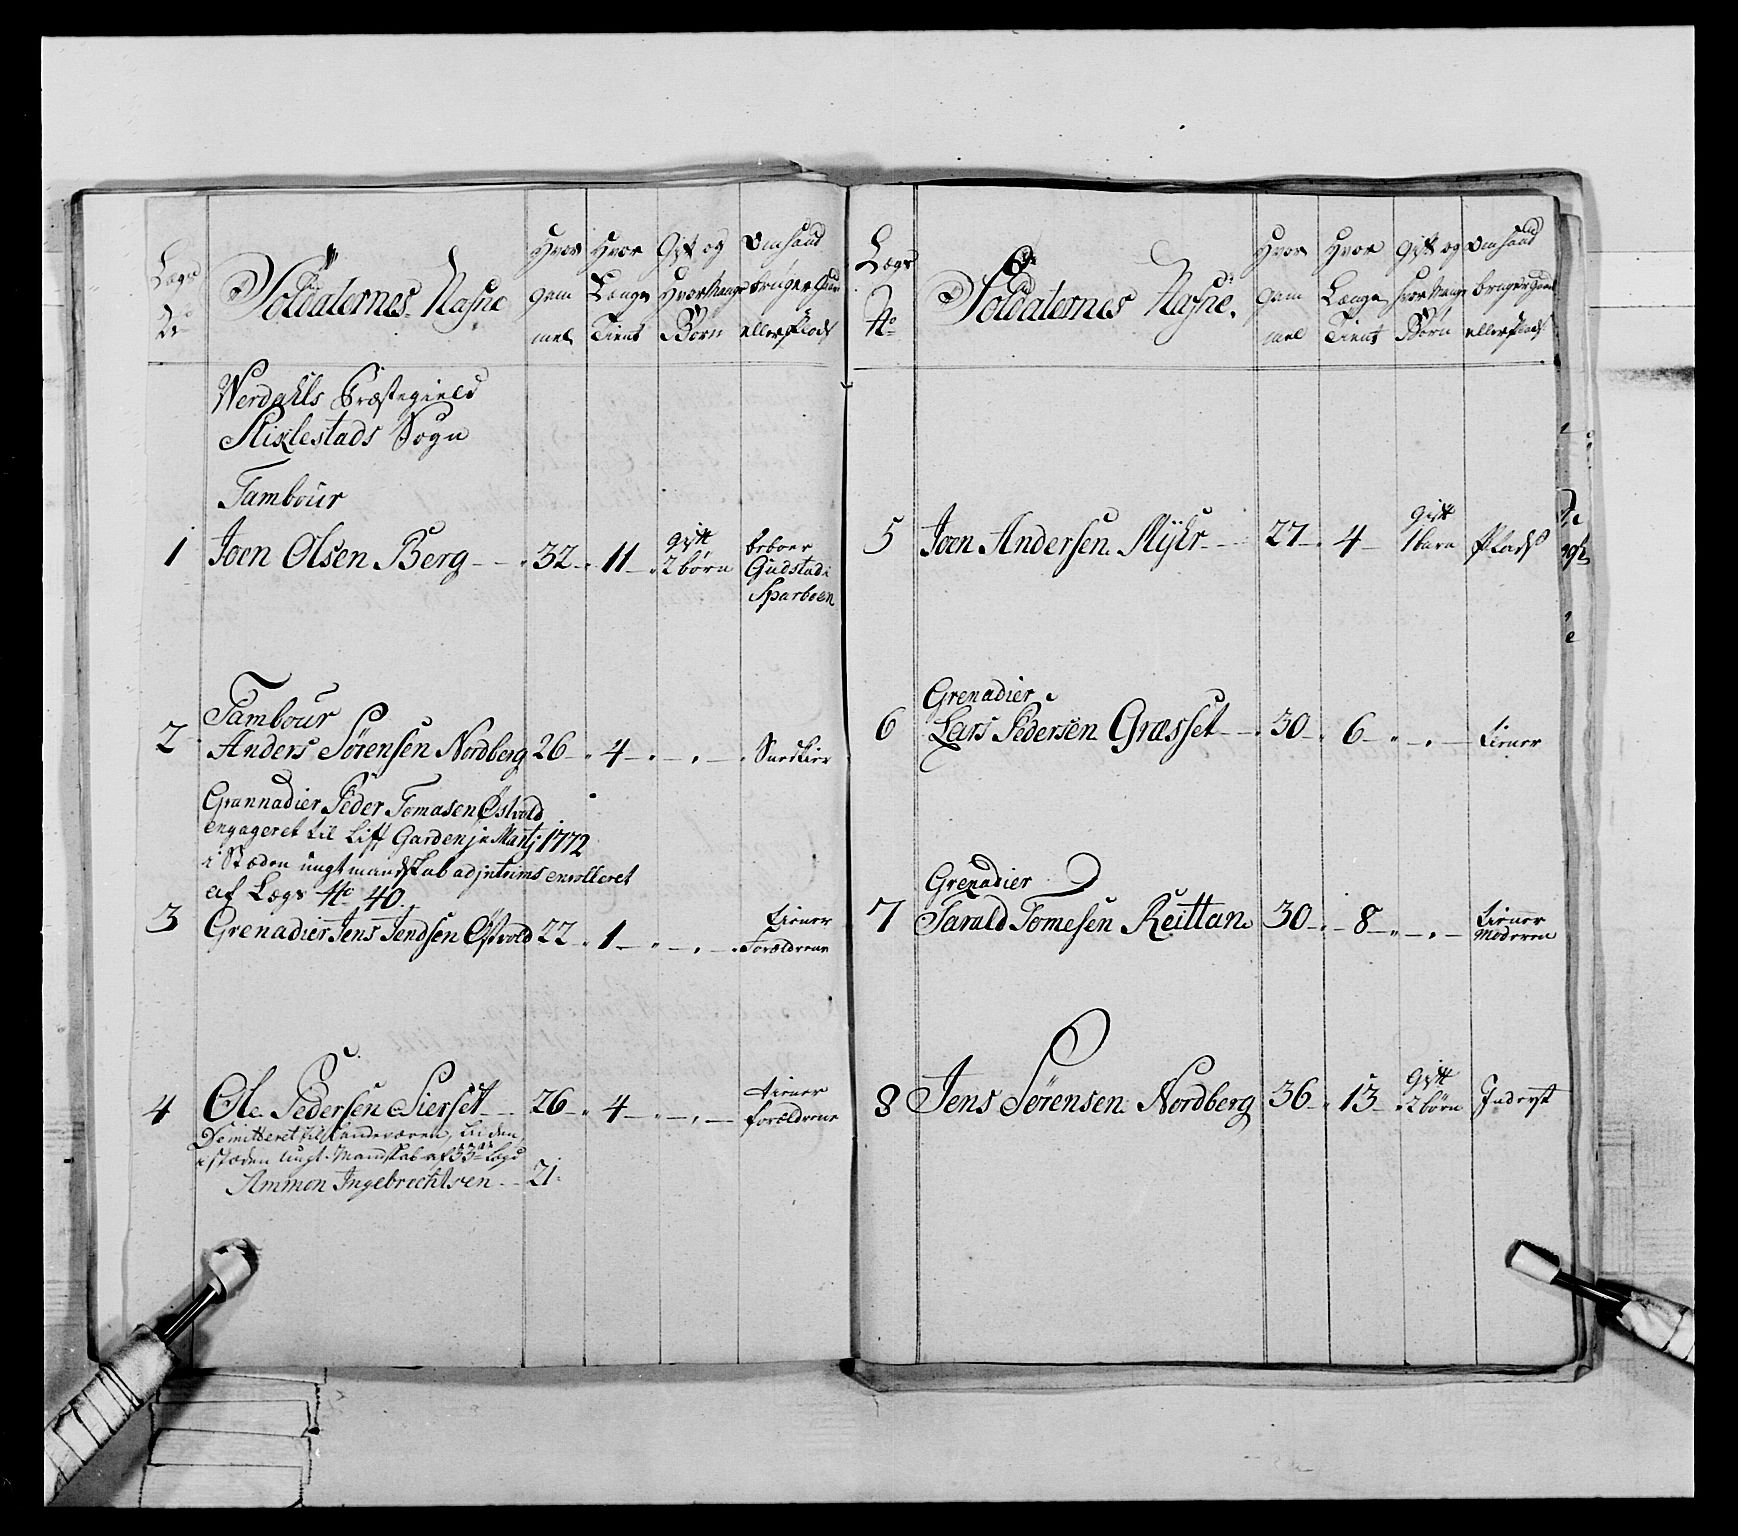 Lægs
No
Soldaternes Nafne
Hvor gam mel
Hvor Længe Tient
Gift og Hvor Mange Børn
Om hand bruger Gaard eller Plads
Werdahls Præstegield
Stixlestads Sogn
Tambour
1 Joen Olsen Berg 32 11 gift 2 børn beboer Gudstad i Sparboen
Tambour
2 Anders Sørensen Nordberg 26 4 Snedkier
Grannadier Peder Tomasen Østvold
engageret til Liff Garden in Martj 1772
i Stæden ungt mandskab adjnterims enrolleret
af Lægs No 40
3 Grenadier Jens Jendsen Østvold 22 1 tiener Forældrene
4 Ole Pedersen Sierset 26 4 tiener forældrene
Demitteret til Landeværen,
i stæden ungt Mandskab af 33de Lægd
Ammon Ingebrechtsen 21
Lægs
No
Soldaternes Nafne.
Hvor gam mel
Hvor Længe Tient
gift og hvor Mange Børn
Om hand bruger Gaard eller Plads
5 Joen Andersen Myhr 27 4 gift 1 barn Plads
Grenadier
6 Lars Pedersen Græsset 30 6 tiener
Grenadier
7 Tarald Tomesen Reittan 30 8 tiener Moderen
8 Jens Sørensen Nordberg 36 13 gift 2 børn Inderst